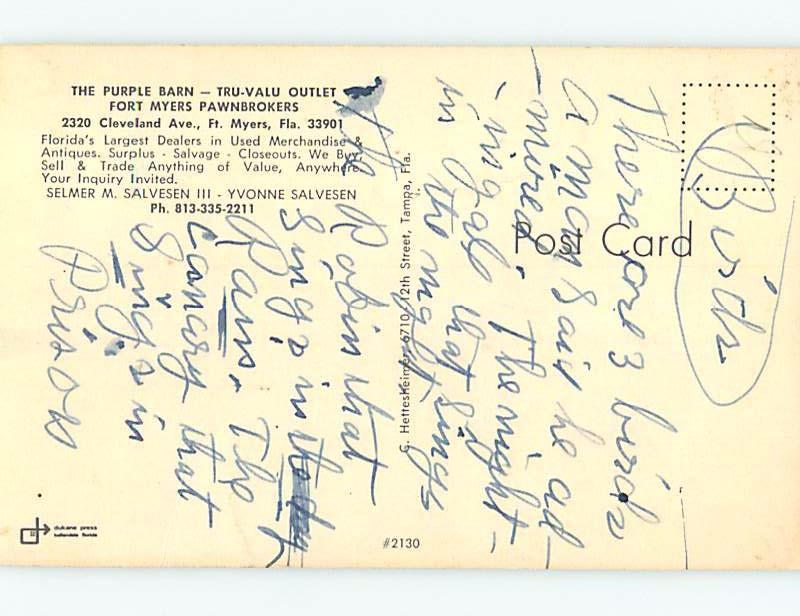 THE PURPLE BARN — TRU-VALU OUTLET
FORT MYERS PAWNBROKERS
2320 Cleveland Ave., Ft. Myers, Fla. 33901
Florida's Largest Dealers in Used Merchandise &
Antiques. Surplus - Salvage - Closeouts. We Buy,
Sell & Trade Anything of Value, Anywhere.
Your Inquiry Invited.
SELMER M. SALVESEN III - YVONNE SALVESEN
Ph. 813-335-2211
G. Hettesheimer, 6710 12th Street, Tampa, Fla.
Post Card
Birds
There are 3 birds
a man said he ad-
-mired. The night-
-ingale that sings
in the night
The Robin that
sings in the day
Rain. The
canary that
sings in
Prison
dukane press
hollandale florida
#2130